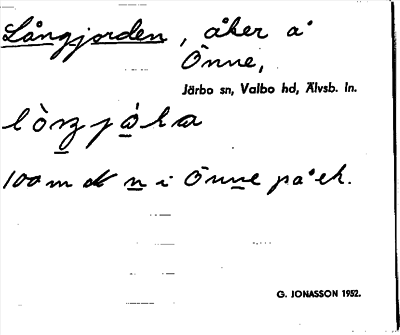 Långjorden, åker å
Önne,
Järbo sn, Valbo hd, Älvsb. ln.
100 m
n i Önne på ek.
G. JONASSON 1952.